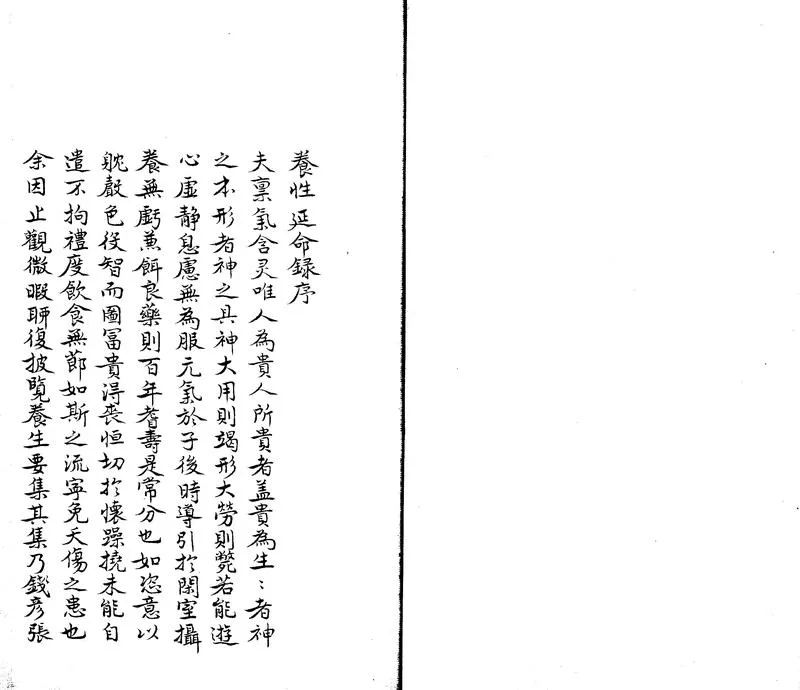 養性延命録序
夫禀氣含灵唯人為貴人所貴者盖貴為生〻者神
之本形者神之具神大用則竭形大勞則斃若能遊
心虛静息慮無為服元氣於子後時導引於閑室攝
養無虧兼餌良藥則百年耆壽是常分也如恣意以
躭聲色役智而圖冨貴淂喪恒切於懷躁撓未能自
遣不拘禮度飲食無莭如斯之流寕免夭傷之患也
余因止觀微暇聊復披覽養生要集其集乃錢彥張